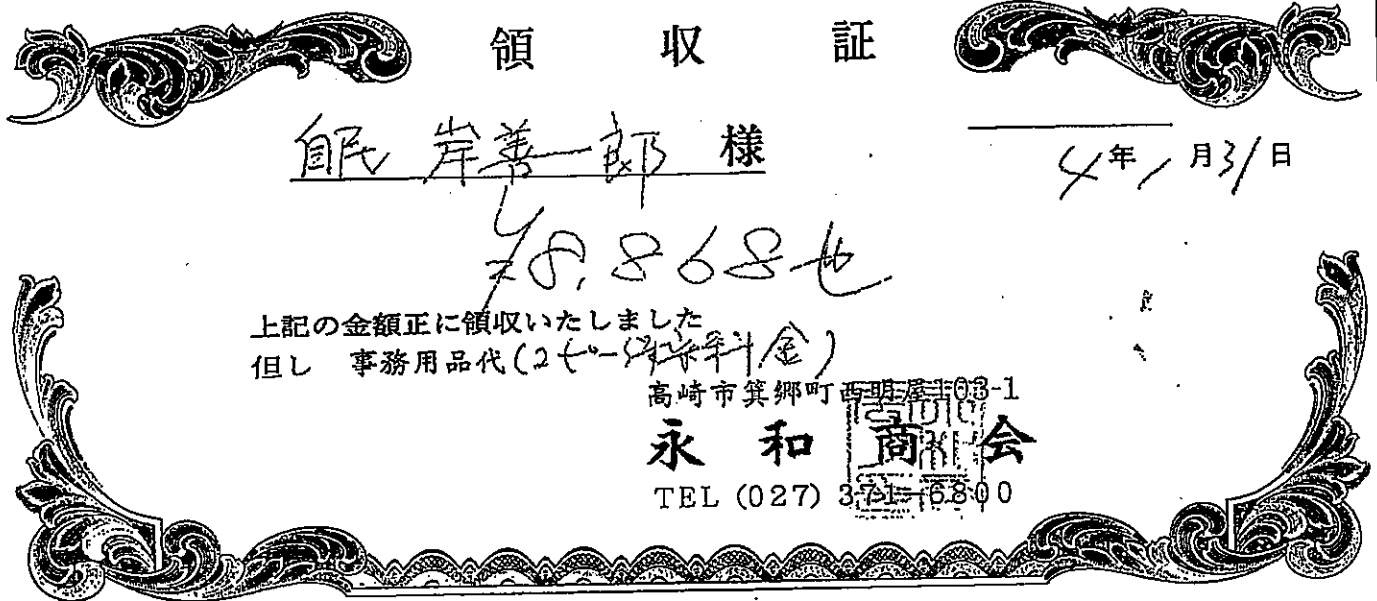 領収証
自民 岸善一郎 様
4年1月31日
¥8,868也
上記の金額正に領収いたしました
但し 事務用品代(コピー 料金)
高崎市箕郷町西明屋103-1
永和商会
TEL (027) 371-6800